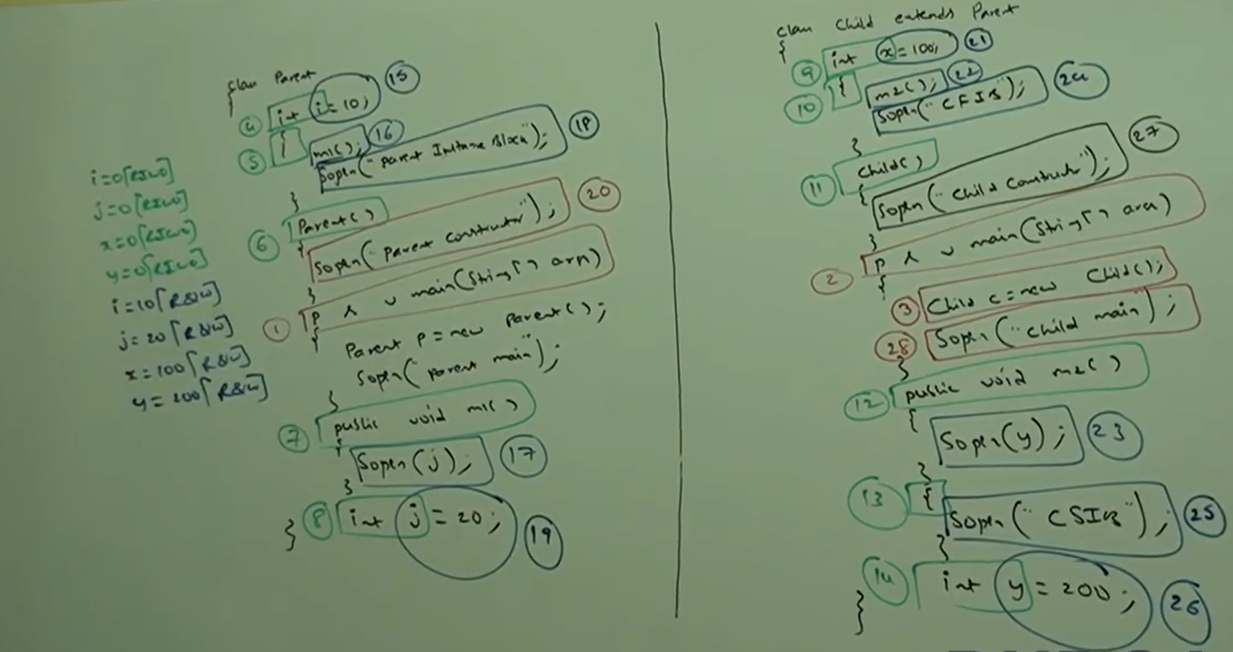 i=0[RIWO]
j=0[RIWO]
x=0[RIWO]
y=0[RIWO]
i=10[R&W]
j=20[R&W]
x=100[R&W]
y=200[R&W]
class Parent
{
④ int i=10; ⑮
⑤ { m1(); ⑯
Sopln("parent Instance Block"); ⑱
}
⑥ Parent()
{
Sopln("parent constructor"); ⑳
}
① p s v main(String[] args)
{
Parent p=new Parent();
Sopln("parent main");
}
⑦ public void m1()
{
Sopln(j); ⑰
}
⑧ int j=20; ⑲
}
class Child extends Parent
{
⑨ int x=100; ㉑
⑩ { m2(); ㉒
Sopln("CFIB"); ㉔
}
⑪ Child()
{
Sopln("Child Constructor"); ㉗
}
② p s v main(String[] args)
{
③ Child c=new Child();
㉘ Sopln("child main");
}
⑫ public void m2()
{
Sopln(y); ㉓
}
⑬ {
Sopln("CSIB"); ㉕
}
⑭ int y=200; ㉖
}